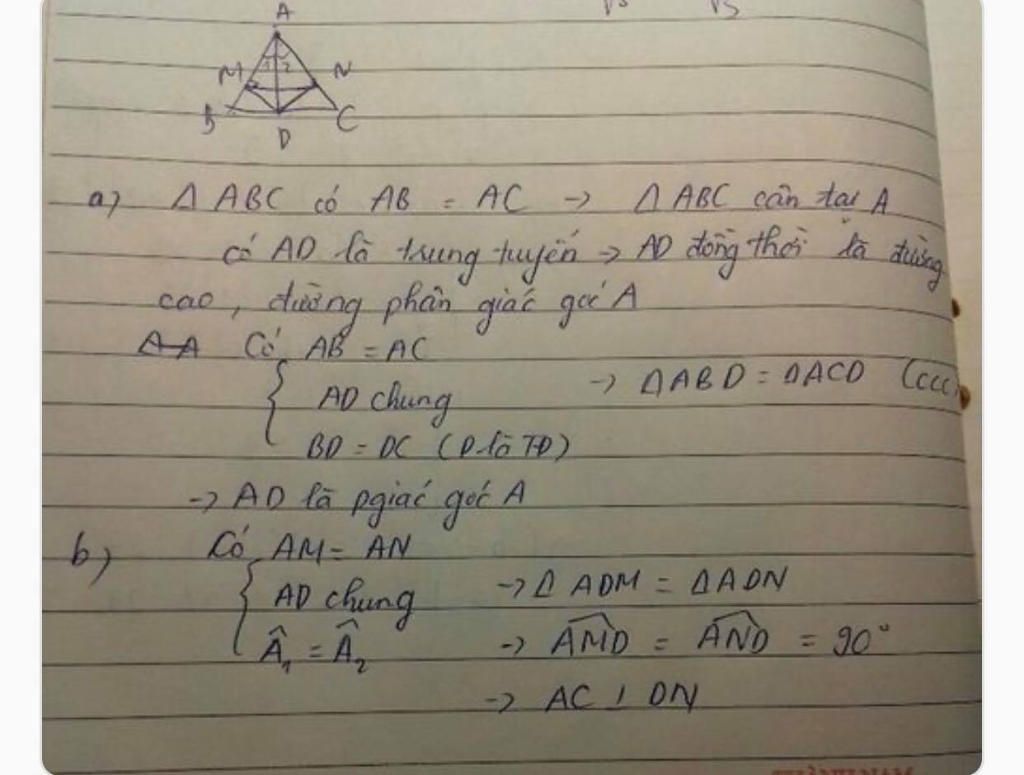 A
1 2
M N
B D C
a) Δ ABC có AB = AC → Δ ABC cân tại A
có AD là trung tuyến → AD đồng thời là đường
cao, đường phân giác góc A
Có AB = AC
AD chung → ΔABD = ΔACD (ccc)
BD = DC (D là TĐ)
→ AD là pgiác góc A
b) Có AM = AN
AD chung → Δ ADM = ΔADN
Â₁ = Â₂ → AMD̂ = AND̂ = 90°
→ AC ⊥ DN